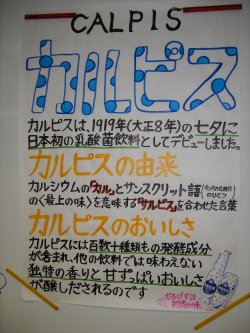 CALPIS
カルピス
カルピスは、1919年(大正8年)の七夕に
日本初の乳酸菌飲料としてデビューしました。
カルピスの由来
カルシウムの「カル」とサンスクリット語
の〈最上の味〉を意味する「サルピス」を合わせた言葉
カルピスのおいしさ
カルピスには百数十種類もの発酵成分
が含まれ、他の飲料では味わえない
独特の香りと甘ずっぱいおいしさ
が醸しだされるのです
かるぴすは
初恋の味